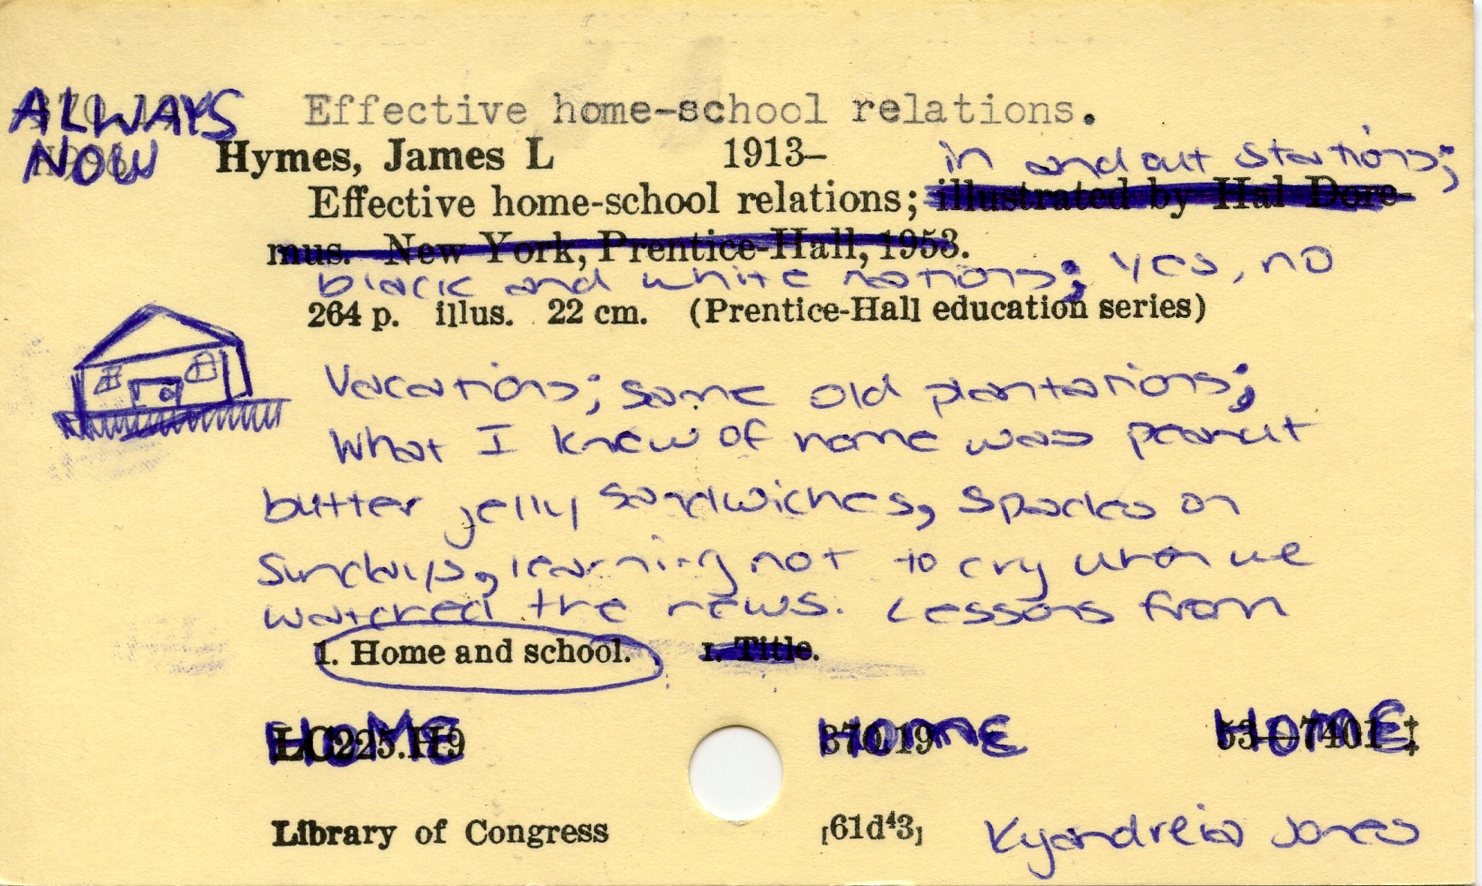 Effective home-school relations.
ALWAYS
NOW
Hymes, James L 1913–
in and out stations;
Effective home-school relations; illustrated by Hal Dore-
mus. New York, Prentice-Hall, 1953.
black and white nations; yes, no
264 p. illus. 22 cm. (Prentice-Hall education series)
Vacations; same old plantations;
What I knew of home was peanut
butter jelly sandwiches, spades on
Sundays, learning not to cry when we
watched the news. Lessons from
1. Home and school. I. Title.
HOME HOME HOME
LC225.H9 370.19 53—7401 ‡
Library of Congress [61d⁴3]
Kyandreia Jones